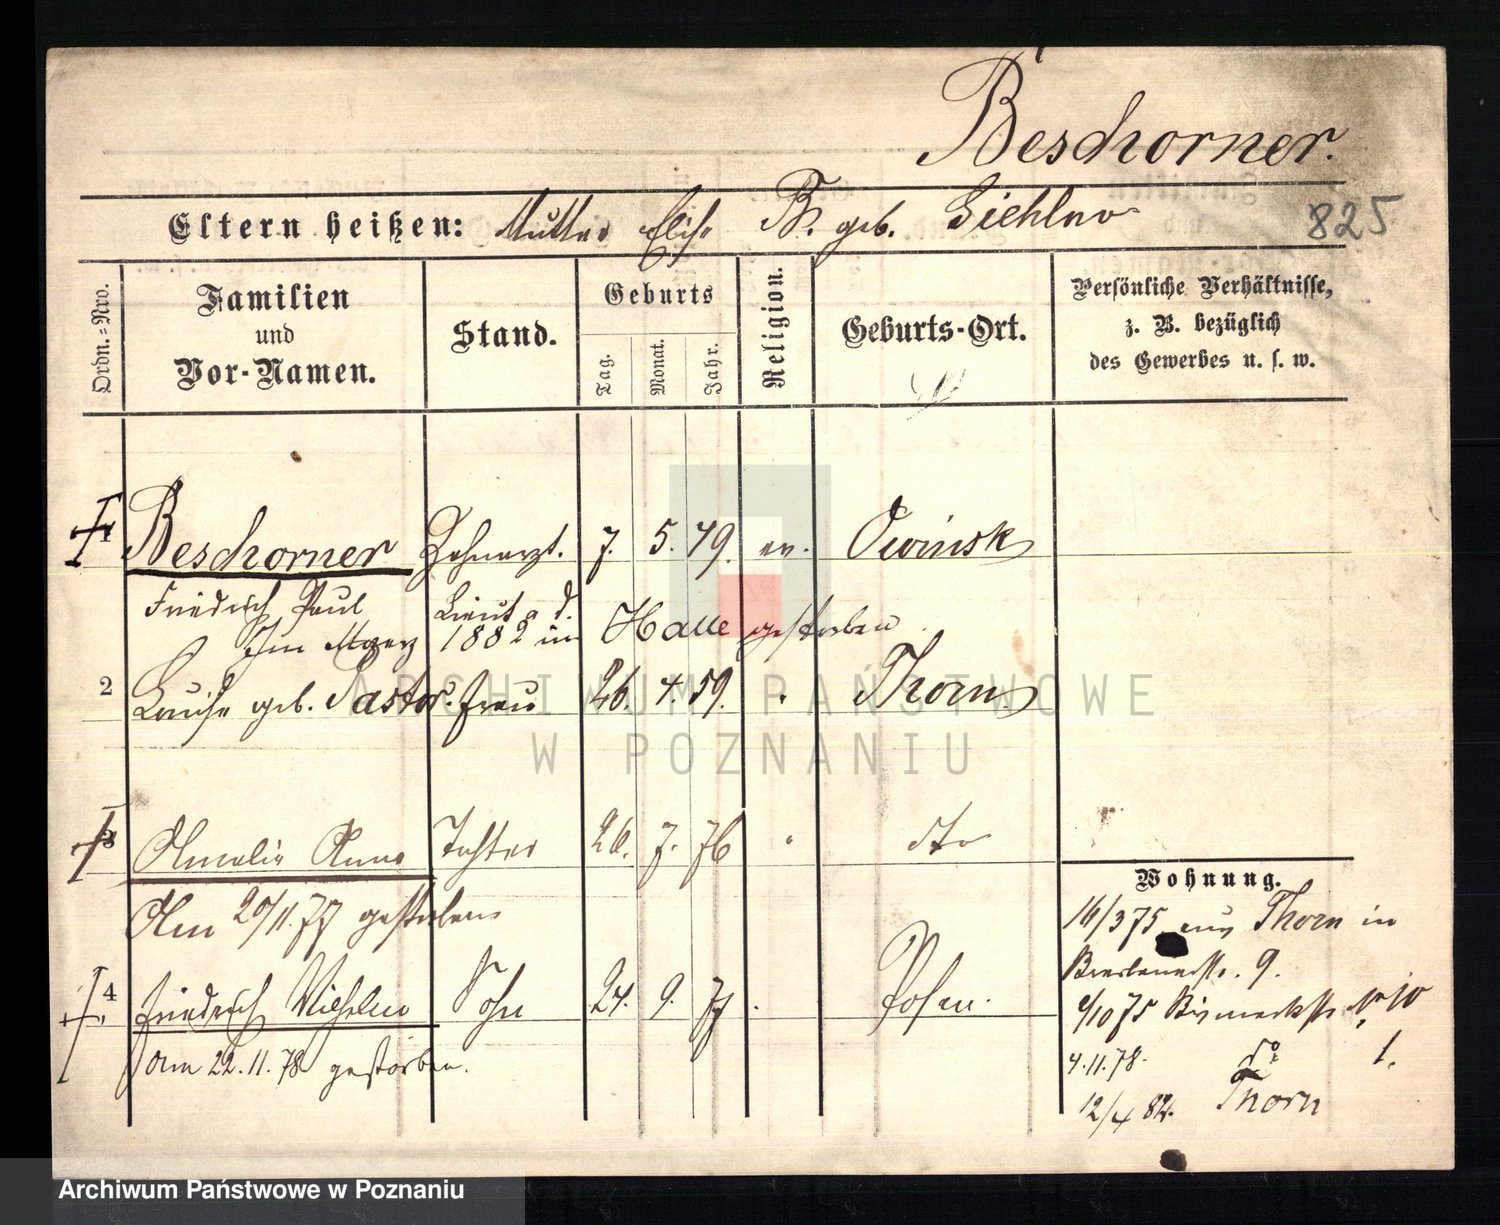 Beschorner.
Eltern heißen: Mutter Elise B. geb. Giehlow
825
Ordn.=Nro.
Familien
und
Vor-Namen.
Stand.
Geburts
Tag.
Monat.
Jahr.
Religion.
Geburts-Ort.
Persönliche Verhältnisse,
z. B. bezüglich
des Gewerbes u. s. w.
1 Beschorner Zahnarzt. 7. 5. 49. ev. Owinsk
Friedrich Paul Lieut a d.
Im Maerz 1882 in Halle gestorben
2 Louise geb. Pastor. Frau 26. 4. 59. " Thorn
ARCHIWUM PAŃSTWOWE
W POZNANIU
3 Amalie Anna Tochter 26. 7. 76 " dto
Am 20/11.77 gestorben
4 Friedrich Wilhelm Sohn 24. 9. 77 Posen.
Am 22.11.78 gestorben.
Wohnung.
16/3 75 aus Thorn in
Breslauerstr. 9.
/10 75 Bismarckstr No 10
4.11.78. do 1.
12/4 82. Thorn
Archiwum Państwowe w Poznaniu